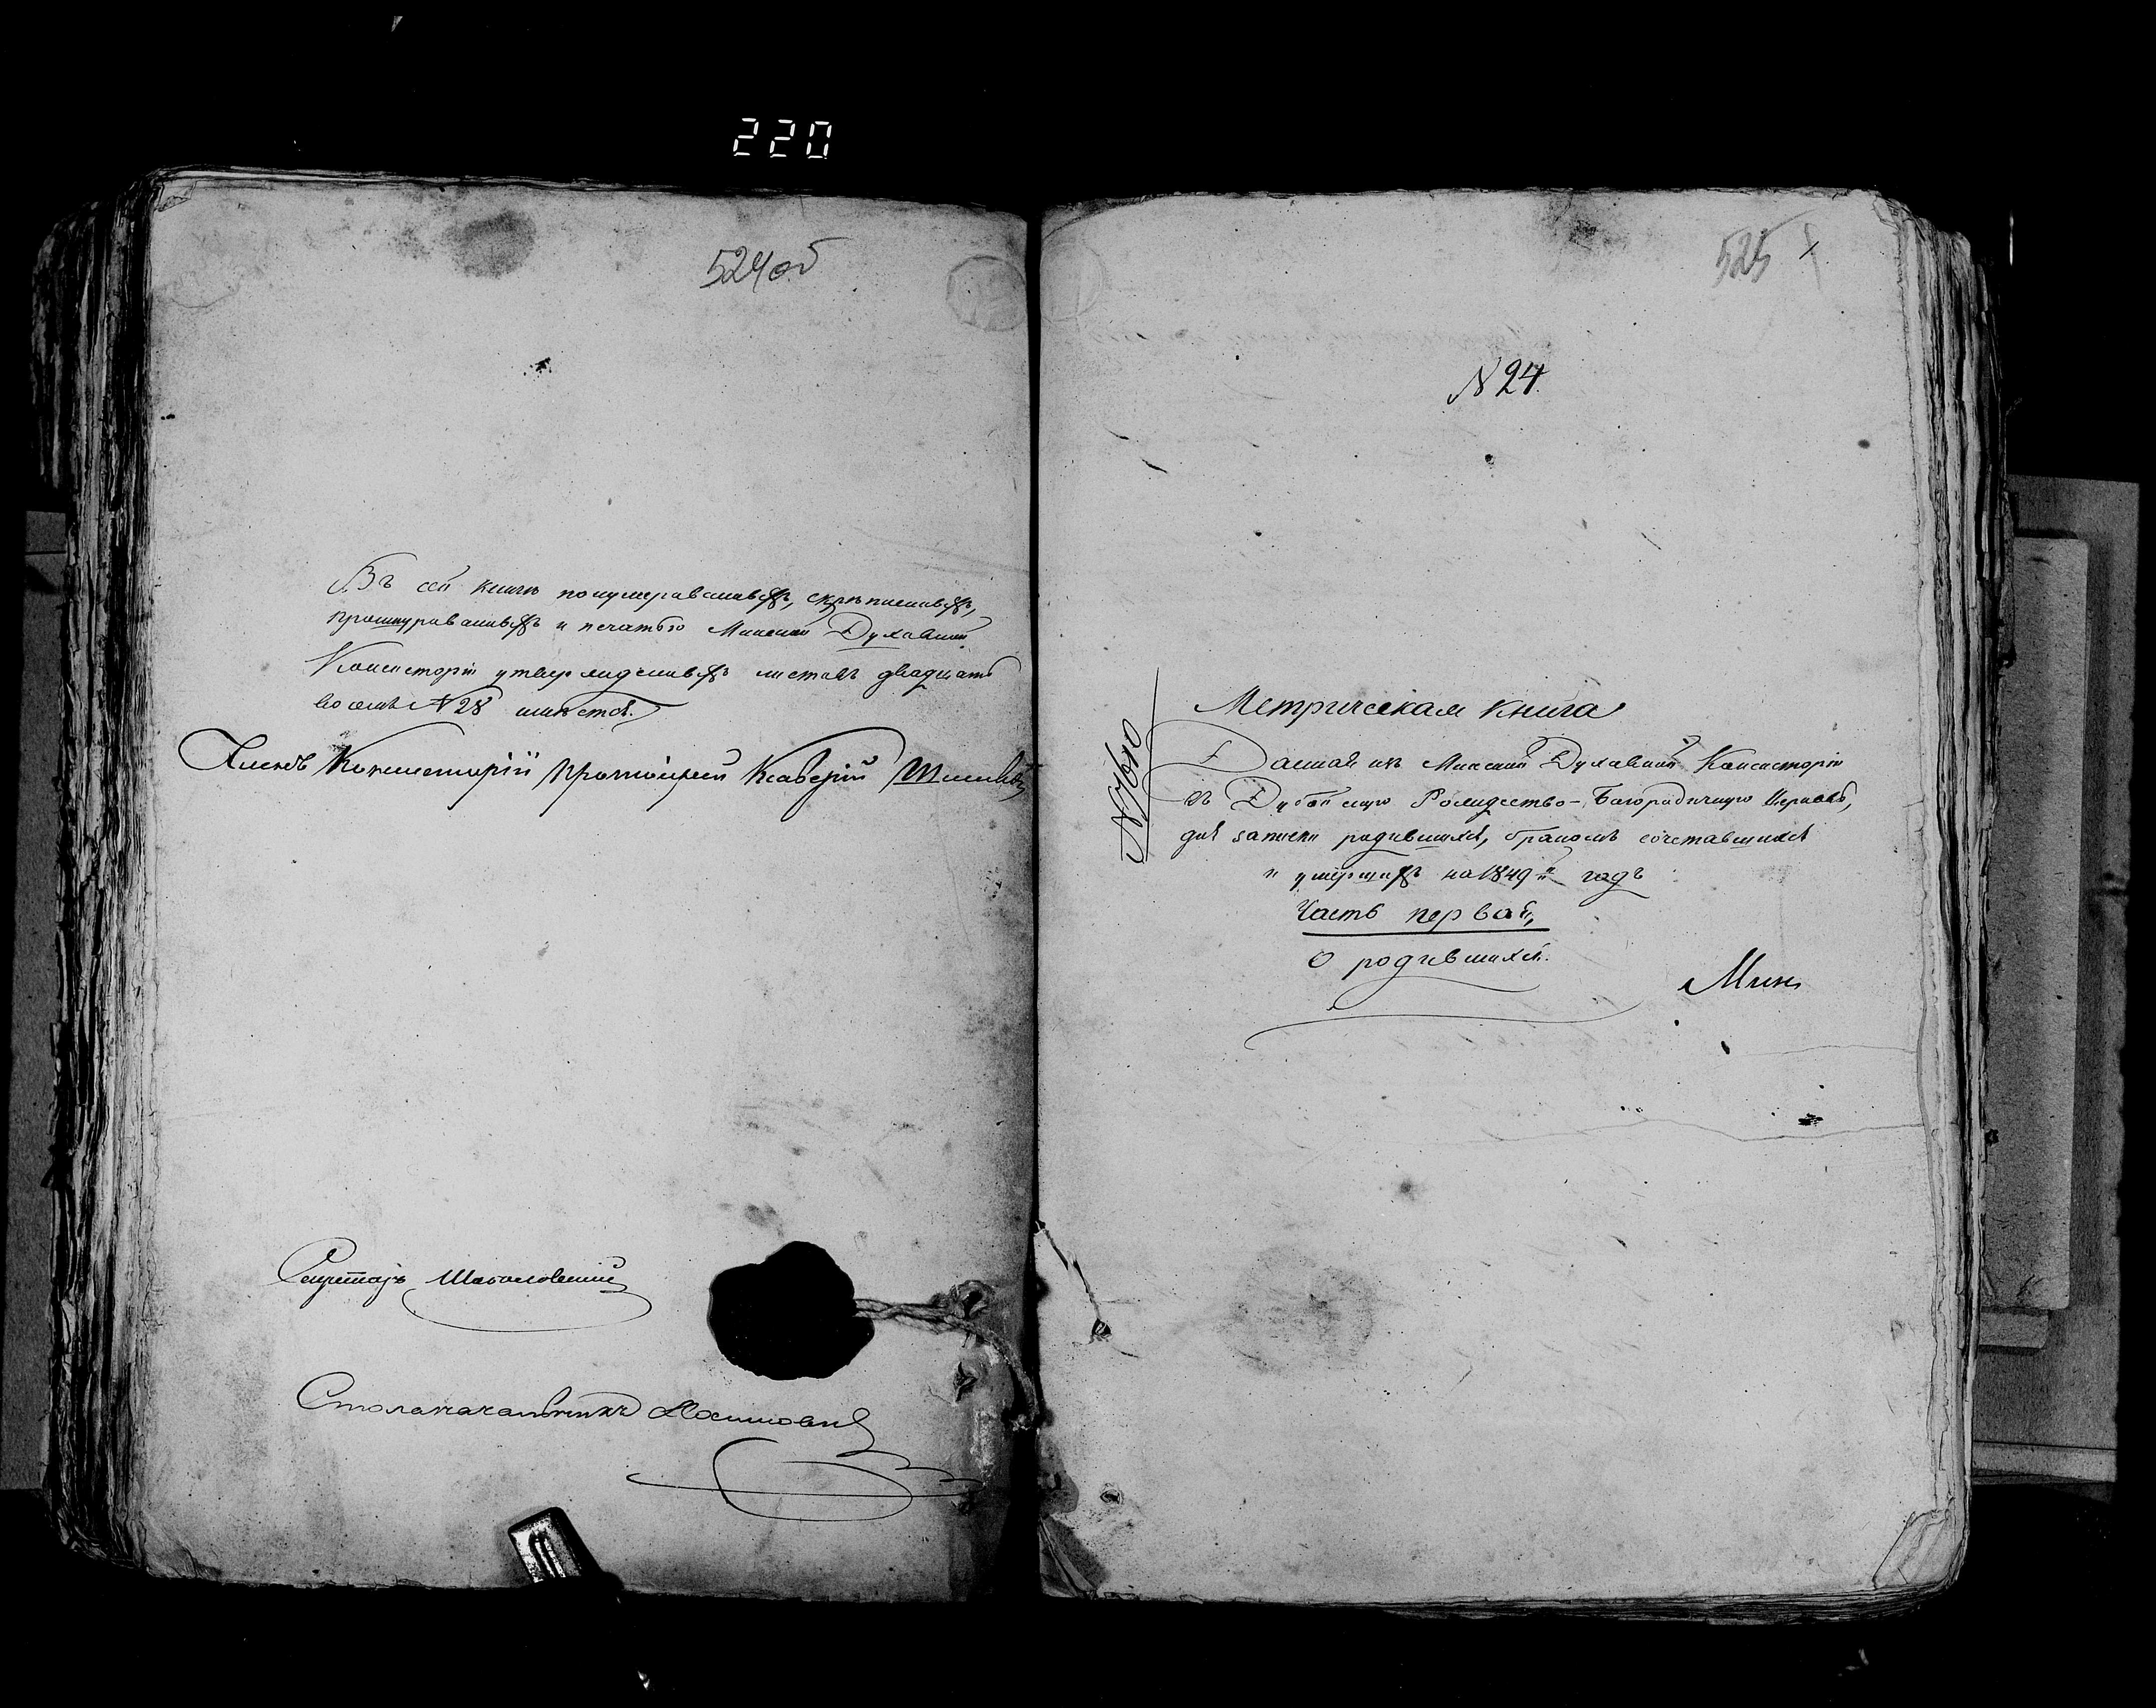 220
524об
Въ сей книгѣ нонумерованныхъ, скрѣпленныхъ,
прошнурованныхъ и печатью Минской Духовной
Консисторіи утвержденныхъ листовъ двадцать
восемь N 28 имѣется.
Членъ Консисторіи Протоіерей
Секретарь
Столоначальникъ
525
N 24.
N 7610
Метрическая книга
Данная изъ Минской Духовной Консисторіи
въ Рождество-Богородичную Церковь,
для записки родившихся, бракомъ сочетавшихся
и умершихъ на 1849й годъ
Часть первая,
О родившихся.
Мин